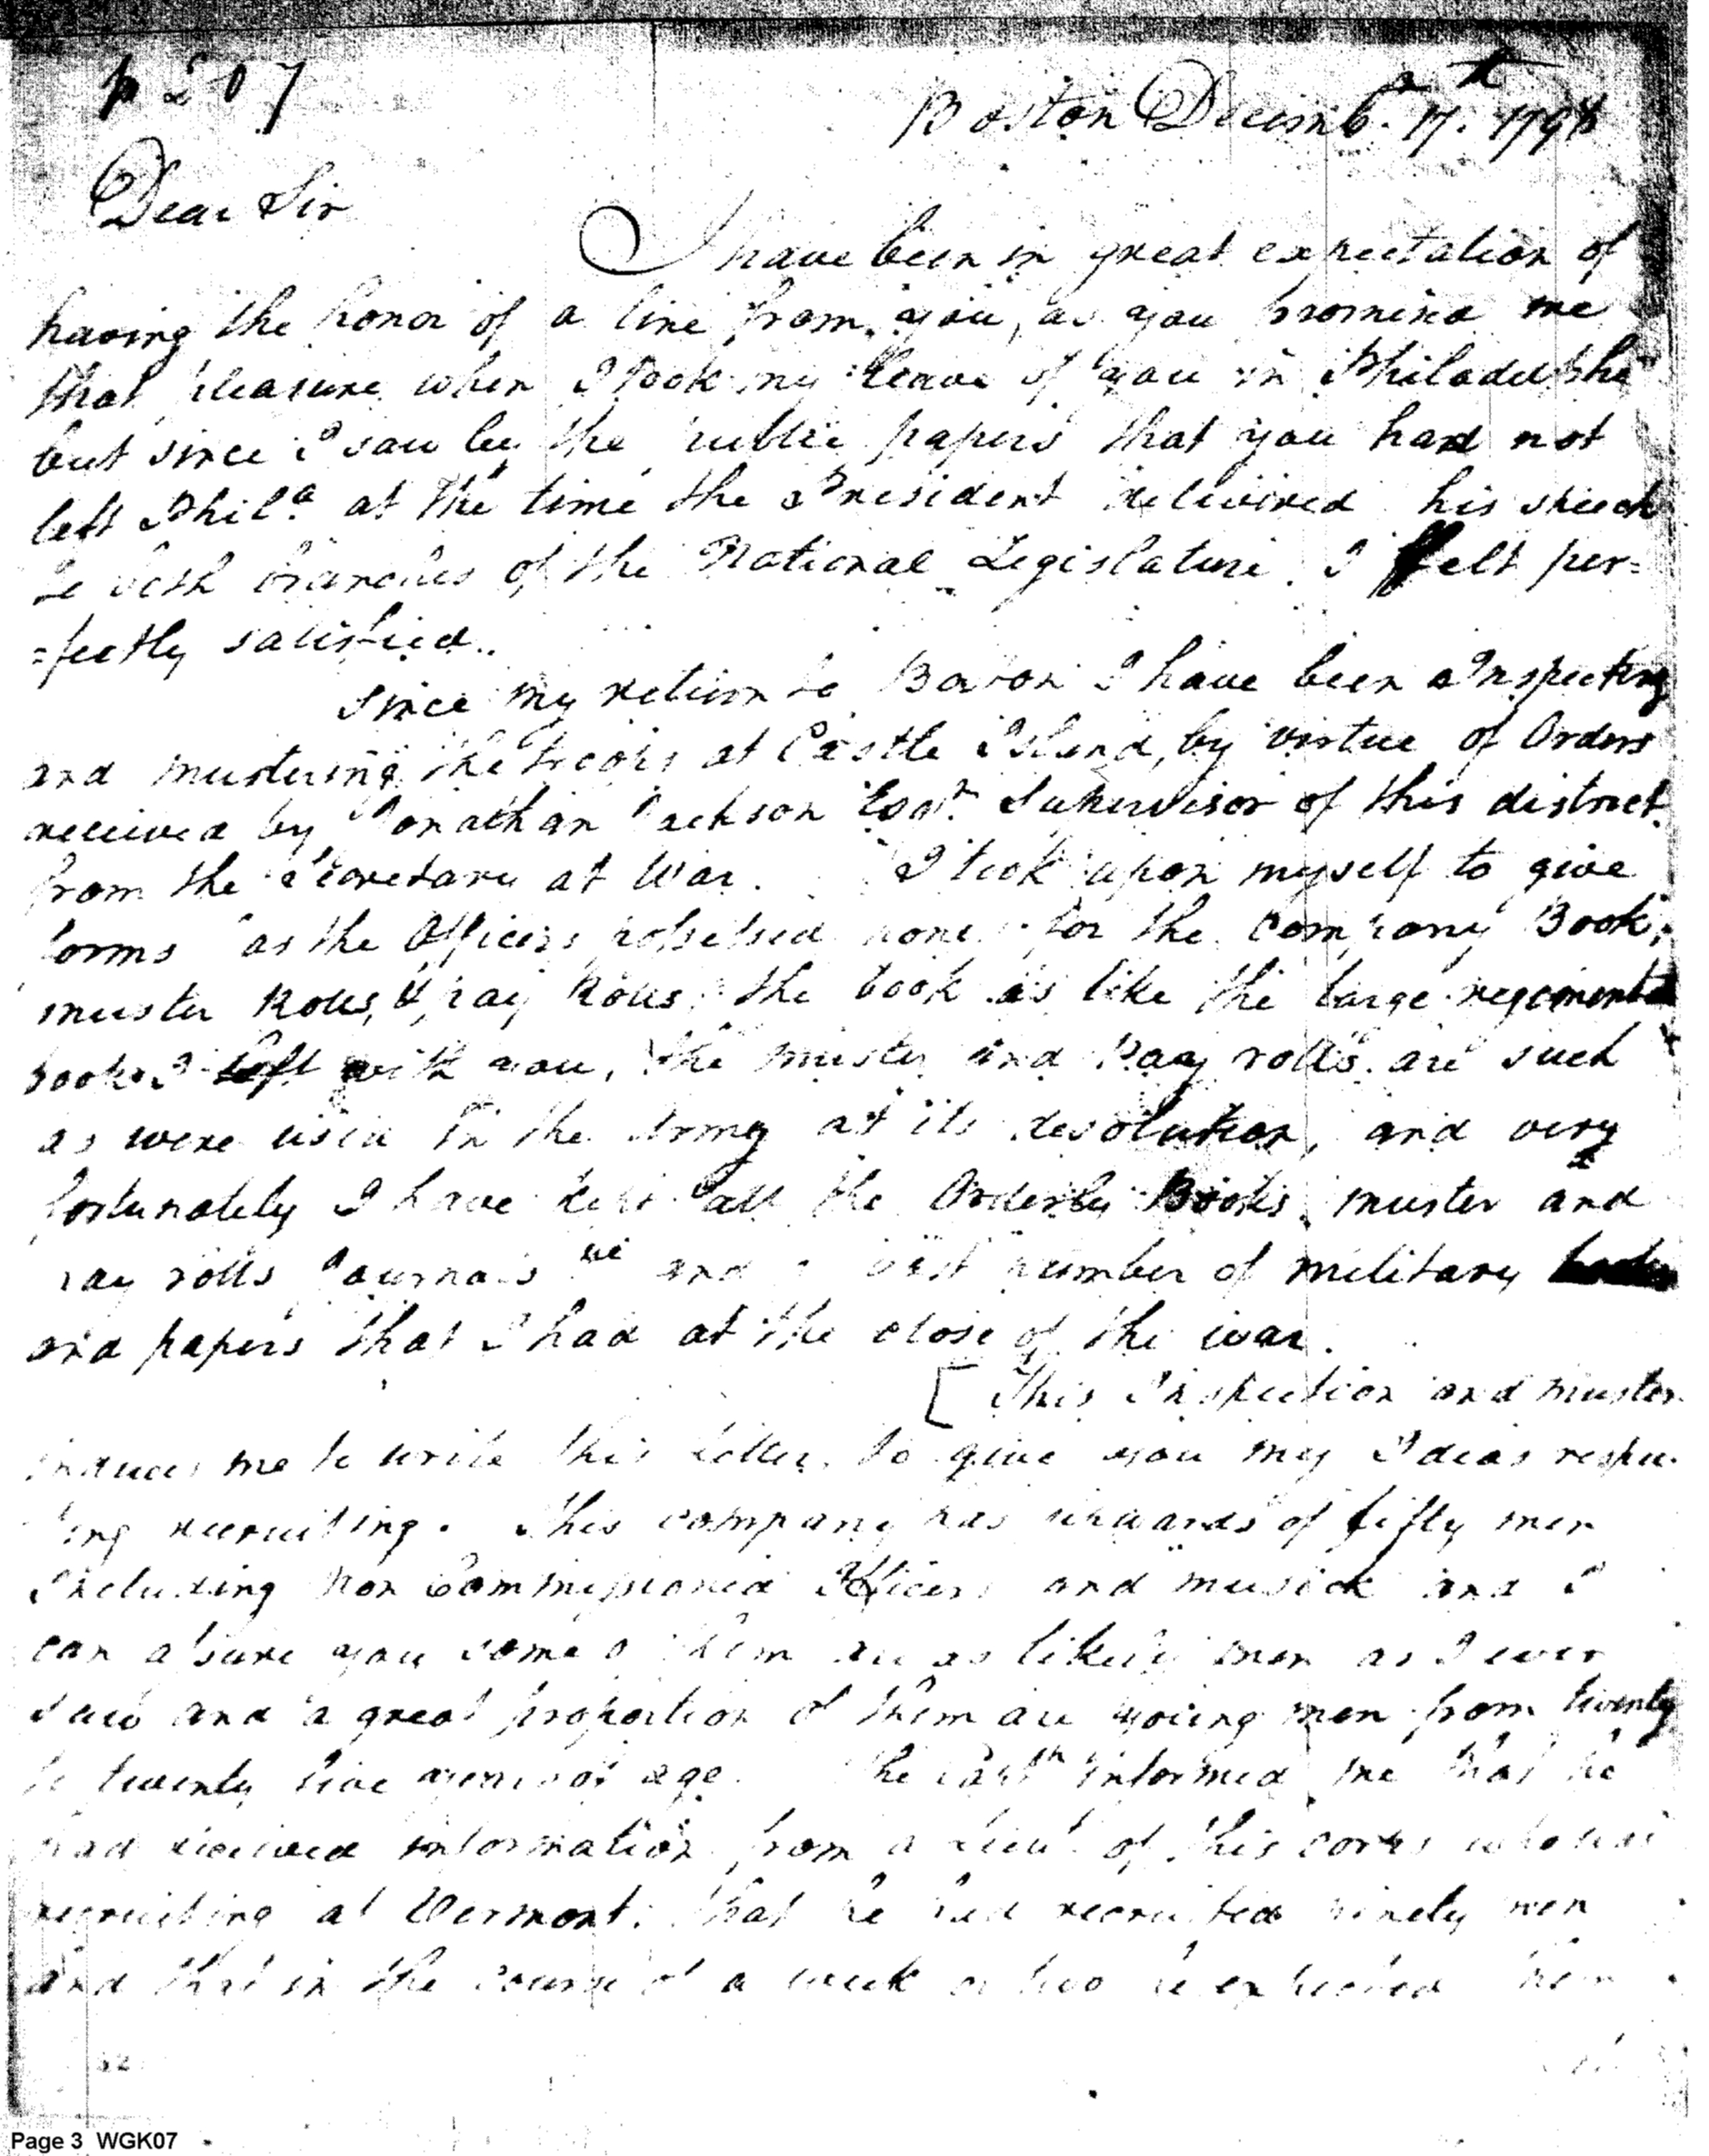 p 207
Boston Decemb.r 17.th 1798
Dear Sir
I have been in great expectation of
having the honor of a line from you, as you promised me
that pleasure when I took my leave of you in Philadelphi
but since I saw by the public papers that you had not
left Phil.a at the time the President delivered his speech
to both branches of the National Legislature. I felt per=
=fectly satisfied..
Since my return to Boston I have been Inspecting
and mustering the troops at Castle Island, by virtue of Orders
received by Jonathan Jackson Esqr. Supervisor of this district
from the Secretary at War. I took upon myself to give
forms as the Officers possessed none for the Company Book,
muster Rolls, & pay Rolls. the book is like the large regimental
books I left with you, the muster and Pay rolls are such
as were used in the Army at its desolution, and very
fortunately I have kept all the Orderly Books, muster and
pay rolls Journals &c and a vast number of military
and papers that I had at the close of the war.
[ This Inspection and muster
induces me to write this letter, to give you my Ideas respec-
ting recruiting. This company has upwards of fifty men
Including Non Commissioned Officers and musick and I
can assure you some of them are as likely men as I ever
saw and a great proportion of them are young men from twenty
to twenty five years of age. The Captn informed me that he
had received information from a Lieut. of this corps who was
recruiting at Vermont. that he had recruited ninety men
and that in the course of a week or two he expected them
52
Page 3 WGK07